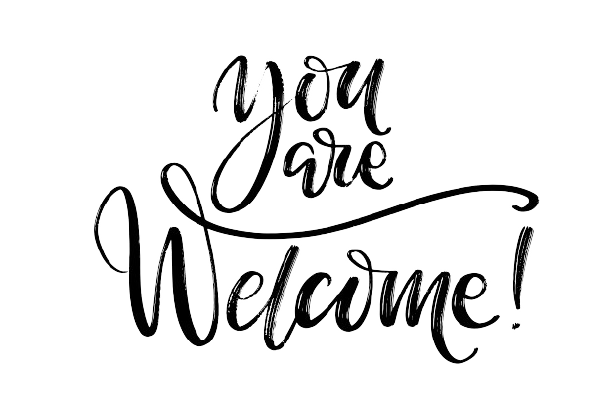 you
are
Welcome!